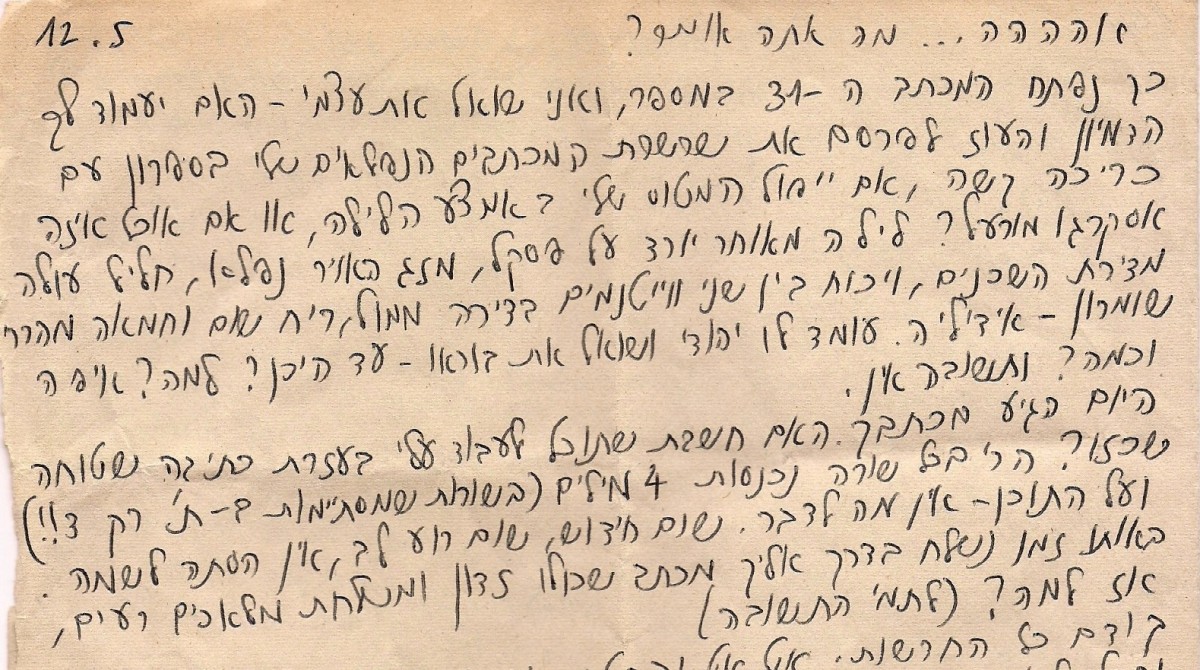 12.5
אההההה... מה אתה אומר?
כך נפתח המכתב ה-31 במספר, ואני שואל את עצמי - האם יעמוד לך
הדמיון והעוז לפרסם את שרשרת המכתבים הנפלאים שלי בספרון עם
כריכה קשה, אם ייפול המטוס שלי באמצע הלילה, או אם אוכל איזה
אסקרגו מורעל? לילה מאוחר יורד על פסקל, מזג האויר נפלא, חליל עולה
מדירת השכנים, ויכוח בין שני ווייטנמים בדירה ממול, ריח שום וחמאה מהררי
שומרון - אידיליה. עומד לו יהודי ושואל את בוראו - עד היכן? למה? איפה
וכמה? ותשובה אין.
היום הגיע מכתבך. האם חשבת שתוכל לעבוד עלי בעזרת כתיבה שטוחה
שכזו? הרי בכל שורה נכנסות 4 מילים (בשורות שמסתיימות ב-ת' רק 3!!)
ועל התוכן - אין מה לדבר. שום חידוש, שום רוע לב, אין הסתה לשמה.
באותו זמן נשלח בדרך אליך מכתב שכולו זדון ומשלחת מלאכים רעים,
אז למה? (לתמ' התשובה)
קודם כל החדשות.